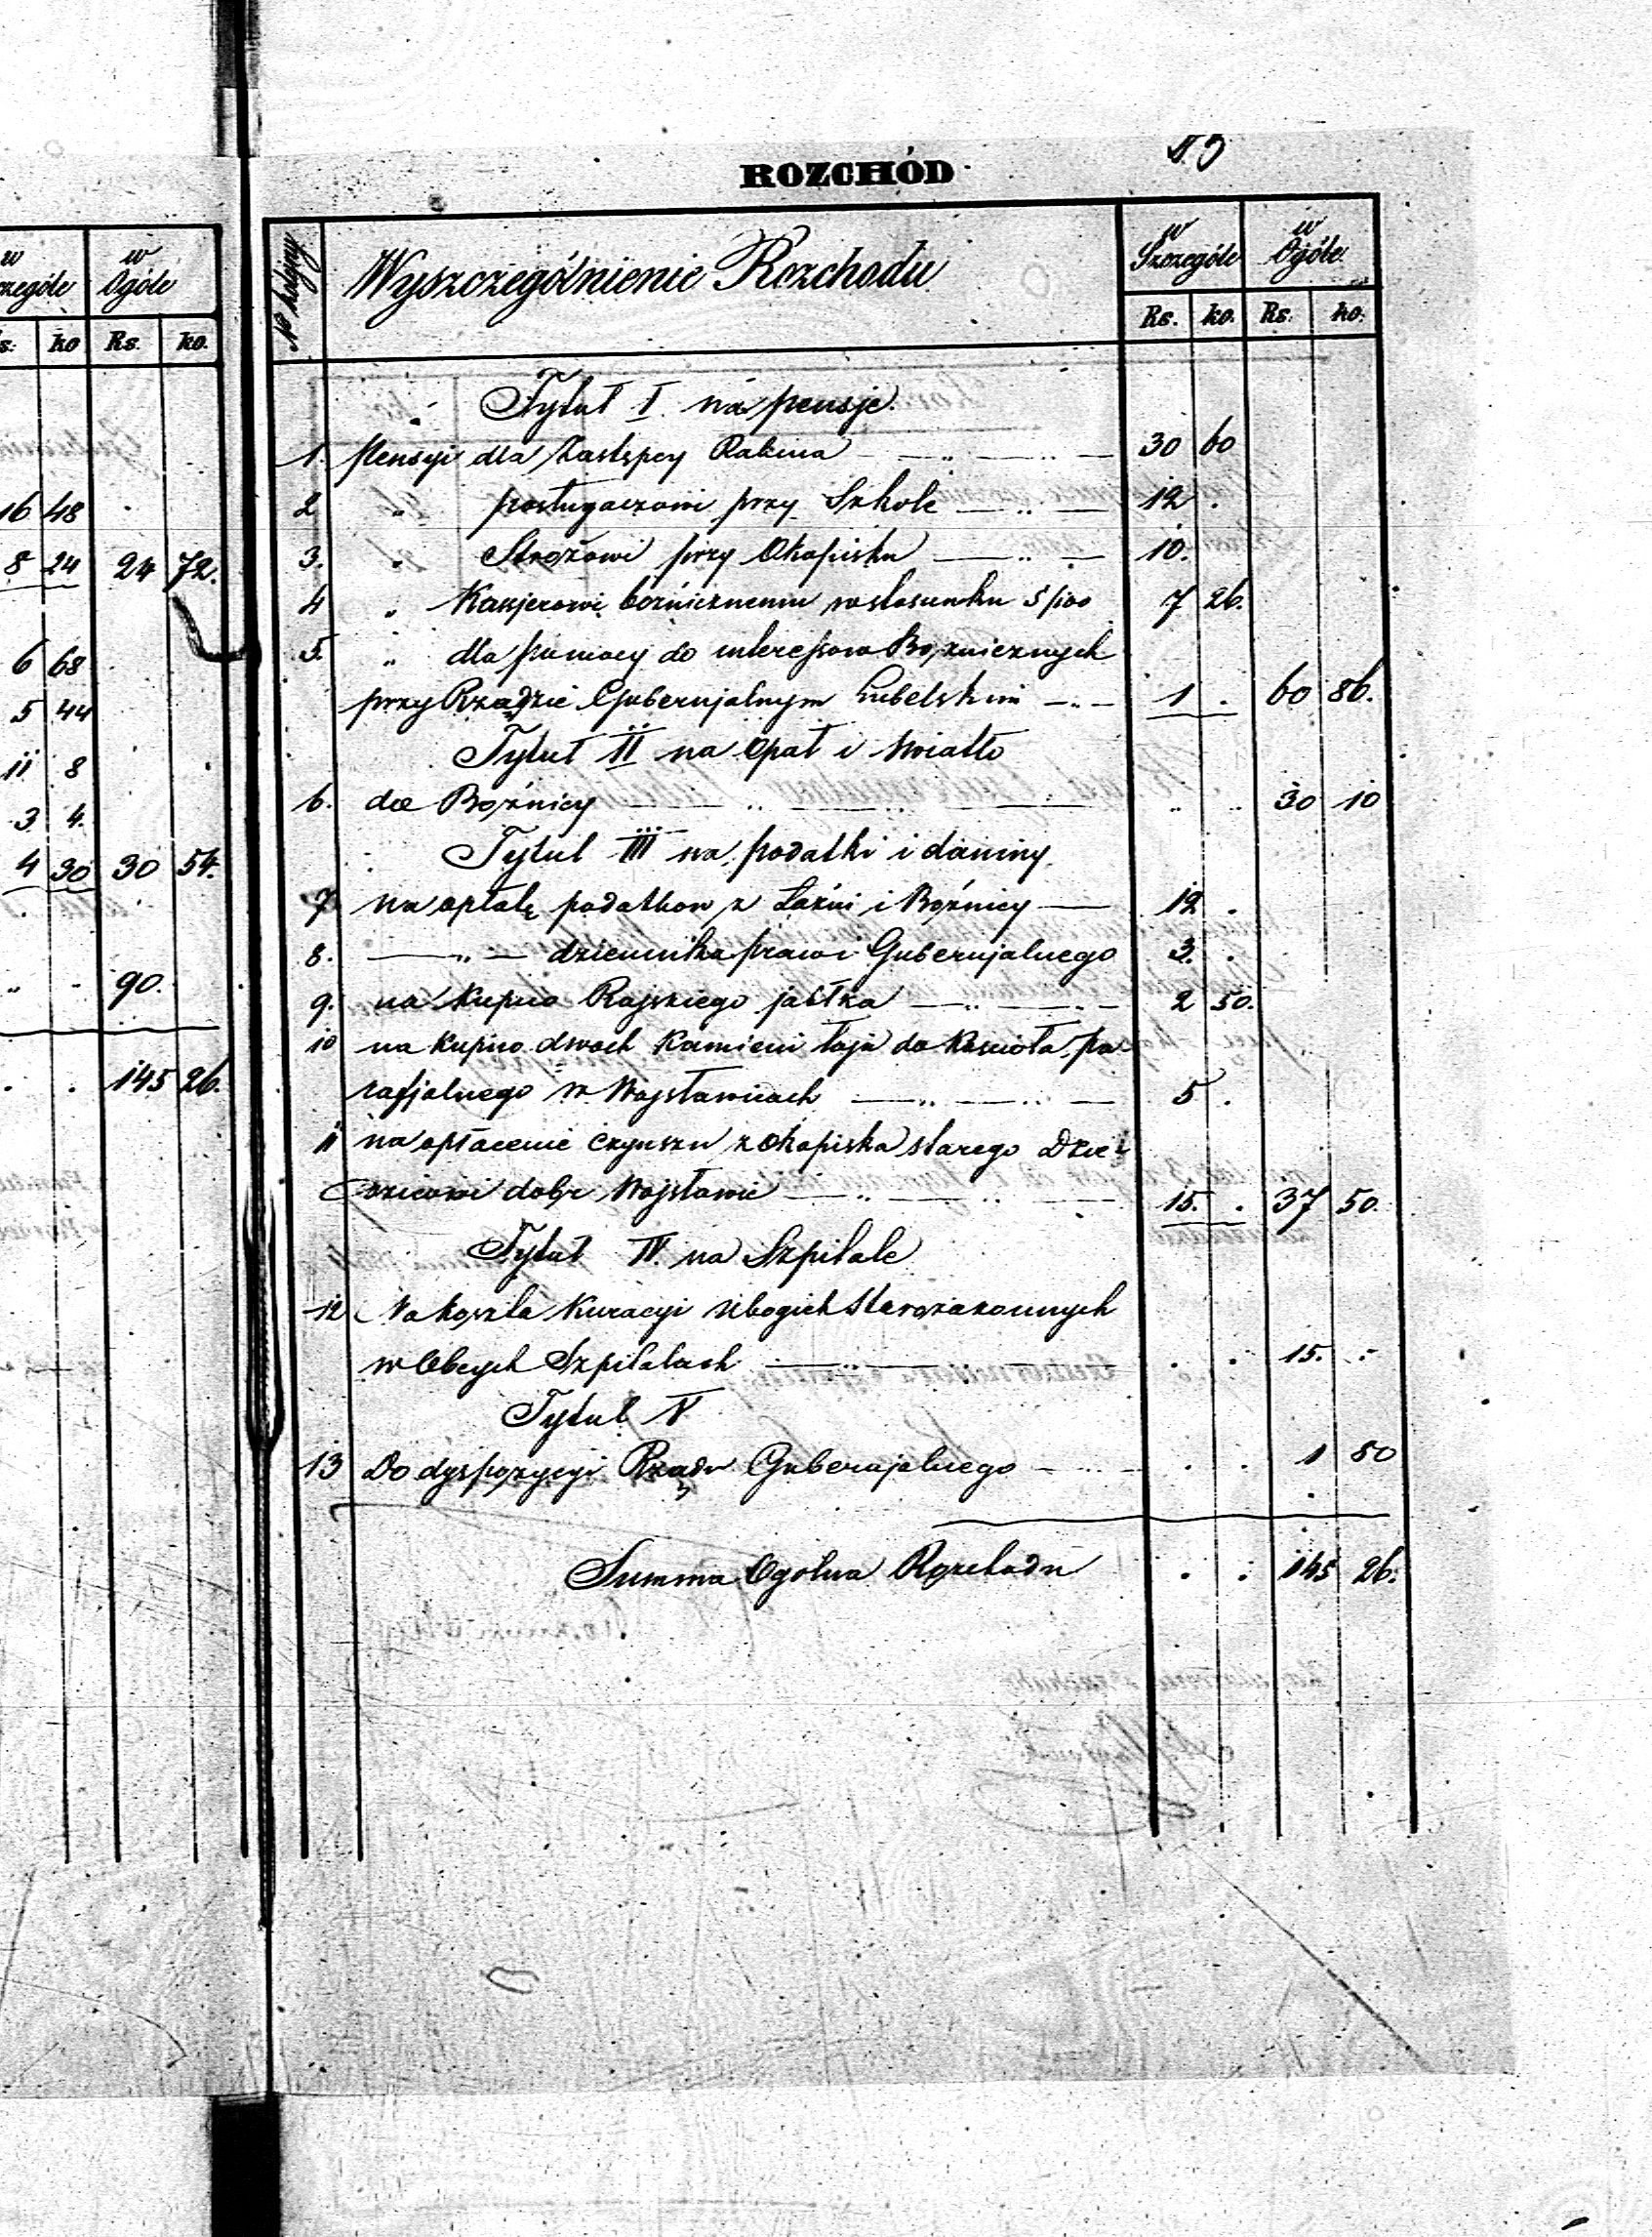 ROZCHÓD
w Szczególe w Ogóle
w Ogóle
Nº kolejny Wyszczególnienie Rozchodu w Szczególe w Ogóle
ko Rs. ko.
Rs. ko. Rs. ko.
Tytuł I na pensje.
1. Pensyi dla Zastępcy Rabina 30 60
16 48
2 " posługaczowi przy Szkole 12 .
8 24 24 72.
3. " Stróżowi przy Okopisku 10.
4 " Kassjerowi bożnicznemu w stosunku 5/100 7 26.
6 68
5. " dla pomocy do interessow Bożnicznych
5 44
przy Rządzie Gubernjalnym Lubelskim 1 . 60 86.
Tytuł II na Opał i Swiatło
11 8
6. do Bożnicy " " 30 10
3 4.
Tytuł III na podatki i daniny
4 30 30 54.
7 na opłatę podatkow z Łaźni i Bożnicy 12 .
8. " dziennika praw i Gubernjalnego 3. .
" - 90.
9. na Kupno Rajskiego jabłka 2 50.
10 na kupno dwoch Kamieni łoju do Koscioła pa-
. . 145 26.
rafjalnego w Wojsławicach 5 .
11 na opłacenie czynszu z Okopiska starego Dzie-
dzicowi dobr Wojsławic 15. . 37 50.
Tytuł IV. na Szpitale
12 Na koszta Kuracyi Ubogich Starozakonnych
w Obcych Szpitalach . . 15. .
Tytuł V
13 Do dyspozycyi Rządu Gubernjalnego . . 1 80
Summa Ogolna Rozchodu . . 145 26.